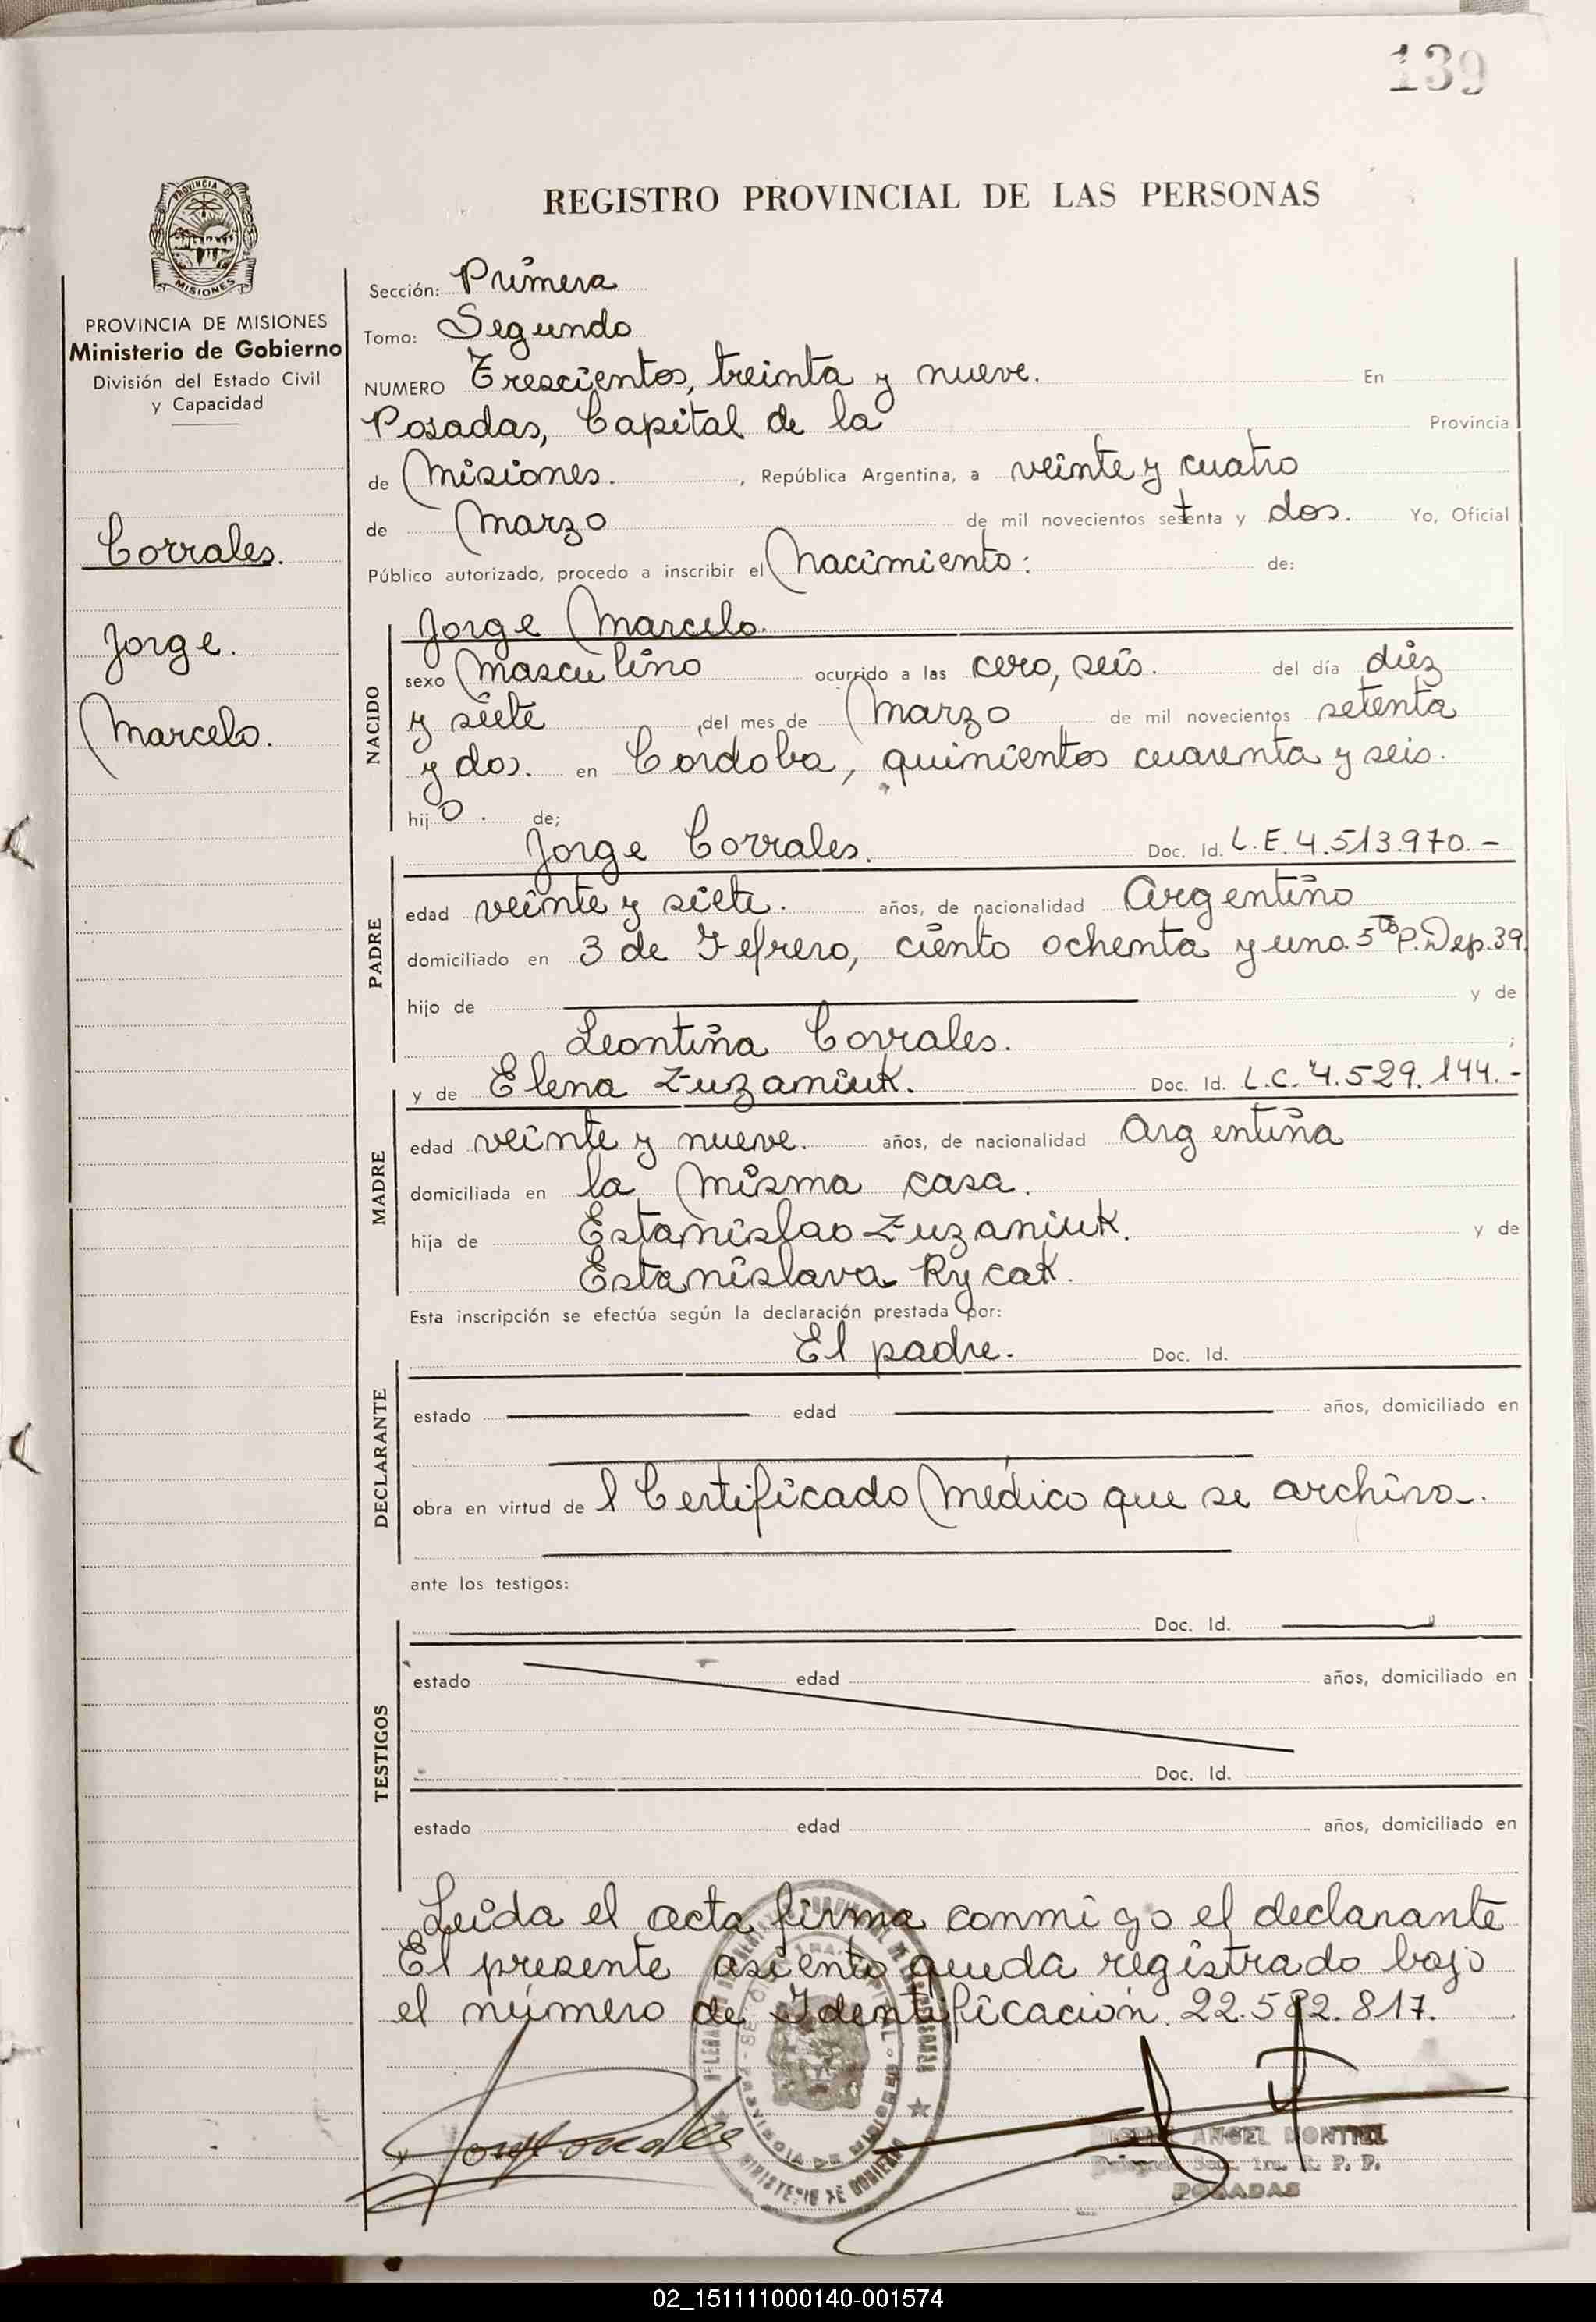 139
REGISTRO PROVINCIAL DE LAS PERSONAS
PROVINCIA DE
MISIONES
PROVINCIA DE MISIONES
Ministerio de Gobierno
División del Estado Civil
y Capacidad
Corrales.
Jorge.
Marcelo.
Sección: Primera
Tomo: Segundo
NUMERO Trescientos, treinta y nueve. En
Posadas, Capital de la Provincia
de Misiones. , República Argentina, a veinte y cuatro
de Marzo de mil novecientos setenta y dos. Yo, Oficial
Público autorizado, procedo a inscribir el Nacimiento: de:
NACIDO
Jorge Marcelo.
sexo Masculino ocurrido a las cero, seis. del día diez
y siete del mes de Marzo de mil novecientos setenta
y dos. en Cordoba, quinientos cuarenta y seis.
hijo. de;
PADRE
Jorge Corrales. Doc. Id. L.E. 4.513.970.-
edad veinte y siete. años, de nacionalidad Argentino
domiciliado en 3 de Fefrero, ciento ochenta y uno. 5to P. Dep. 39
hijo de y de
Leontina Corrales. ;
MADRE
y de Elena Zuzaniuk. Doc. Id. L.C. 4.529.144.-
edad veinte y nueve. años, de nacionalidad Argentina
domiciliada en la Misma casa.
hija de Estanislao Zuzaniuk. y de
Estanislava Rycak.
Esta inscripción se efectúa según la declaración prestada por:
DECLARANTE
El padre. Doc. Id.
estado edad años, domiciliado en
obra en virtud de l Certificado Médico que se archiva.
ante los testigos:
TESTIGOS
Doc. Id.
estado edad años, domiciliado en
Doc. Id.
estado edad años, domiciliado en
Leida el acta firma conmigo el declarante
El presente asiento queda registrado bajo
el número de Identificación 22.582.817.
MINISTERIO DE GOBIERNO
PROVINCIA DE MISIONES
ANGEL MONTIEL
POSADAS
02_151111000140-001574